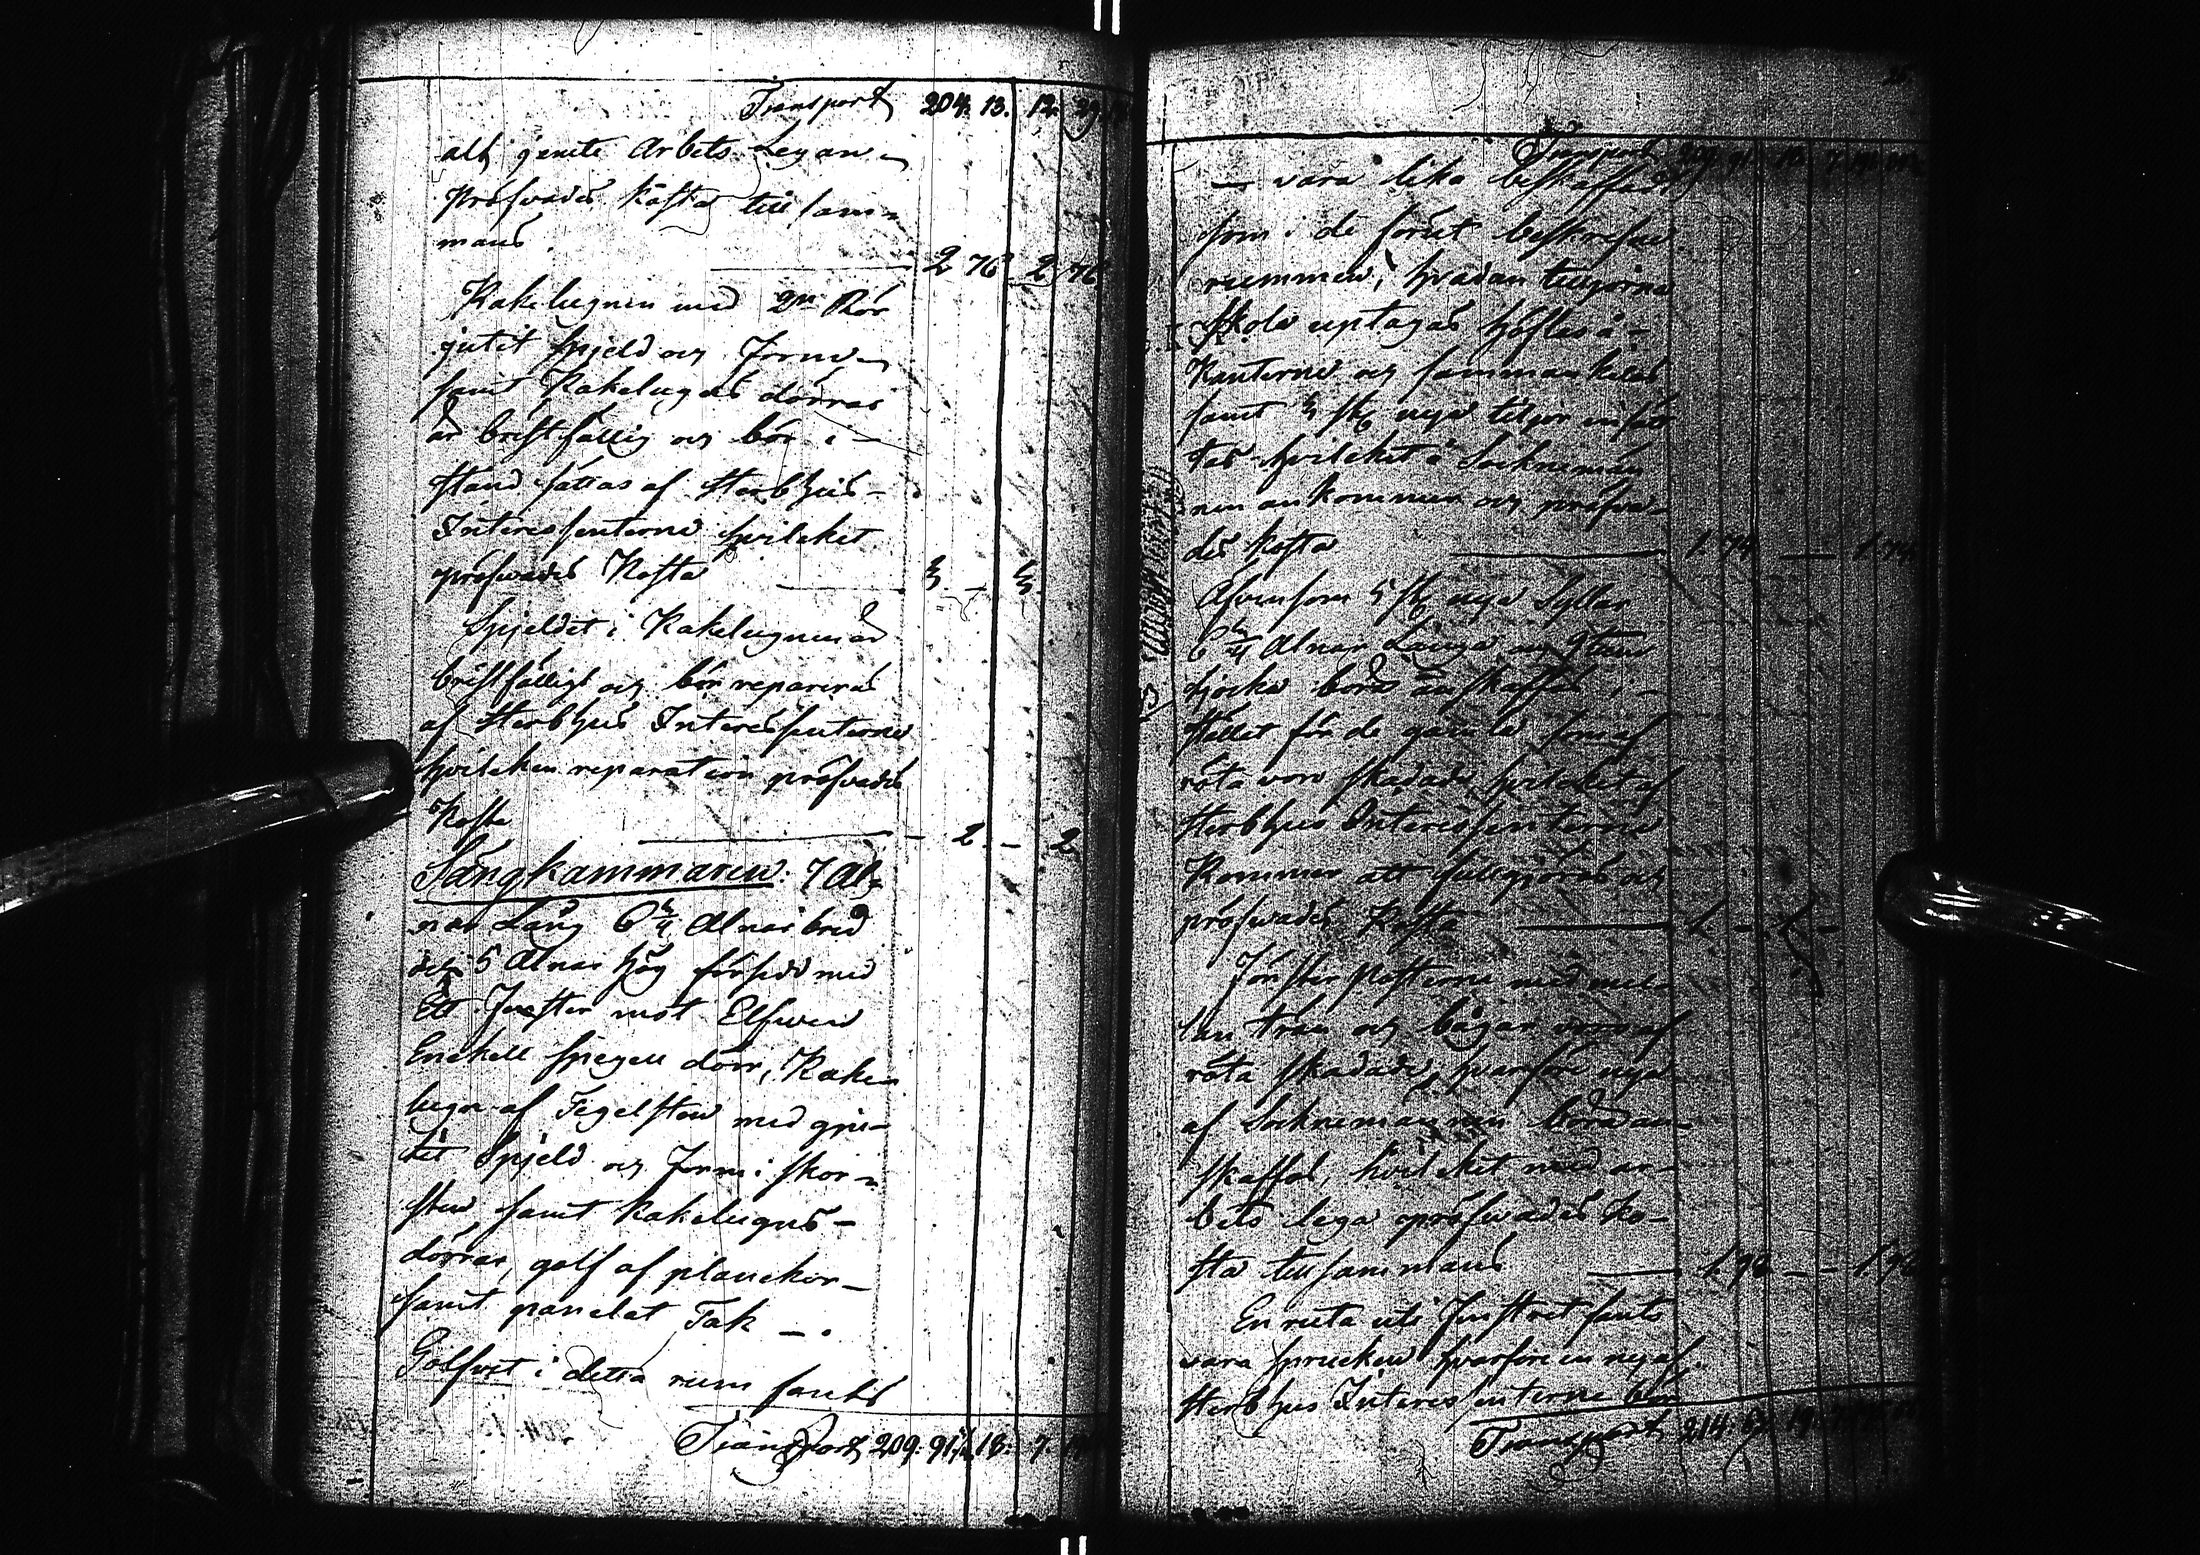 Transport 204. 13. 12. 29.
alt jemte Arbets Legan
Pröfvades kosta tillsam=
mans. 2 76 2 76
Kakelugnen med 2ne Rör
gjutit spjeld och Jernv
samt Kakelugns dörrar
är bristfällig och bör i-
stånd sättas af Sterbhus-
Interessenterne hvilcket
pröfvades Kosta
Spjeldet i Kakelugnen är
bristfälligt och bör repareras
af Sterbhus Interessenterne
hvilcken reparation pröfvades
Kosta - 2. - 2
Sängkammaren: 7 Al=
nar Lång 6 Alnar bred
5 Alnar hög försedd med
Ett Fenster mot Elfven
Enckell spegell dörr, Kake=
lugn af Tegelsten med gju-
tit Spjeld och Jern i skor=
sten, samt kakelugns-
dörrar, golf af planckor-
samt panelat Tak -.
Golfvet i detta rum fants
Transport 209. 91 18. 7.
Transport
- vara lika beskaffadt
som i de förut beskrefne
rummen, hvadan tilljorne
Skola uptagas höflas å
Kanterne och sammankilas
samt st nya tiljor insät
tas hvilcket Socknemän
nen ankommer och pröfva-
des kosta 1. 74 - 1. 74
Äfvensom 5 st nya Syllar
6 Alnar Långa och 9 tum
tjocka böra anskaffas i-
stället för de gamla som af
röta voro skadade, hvilcket af
Sterbhus Interessenterne
Kommer att fullgöras och
pröfvades Kosta
Fönster Posterne med mel=
lan trän och bågar voro af
röta skadade, hvarföre nya
af Socknemännen böra an-
skaffas, hvilcket med ar-
bets lega pröfvades Ko-
sta tillsammans 1. 92 - - 1. 92
En ruta uti Fenstret fants
vara sprucken hvarföre en ny af
Sterbhus Interessenterne bör
Transport 214. 57. 19.